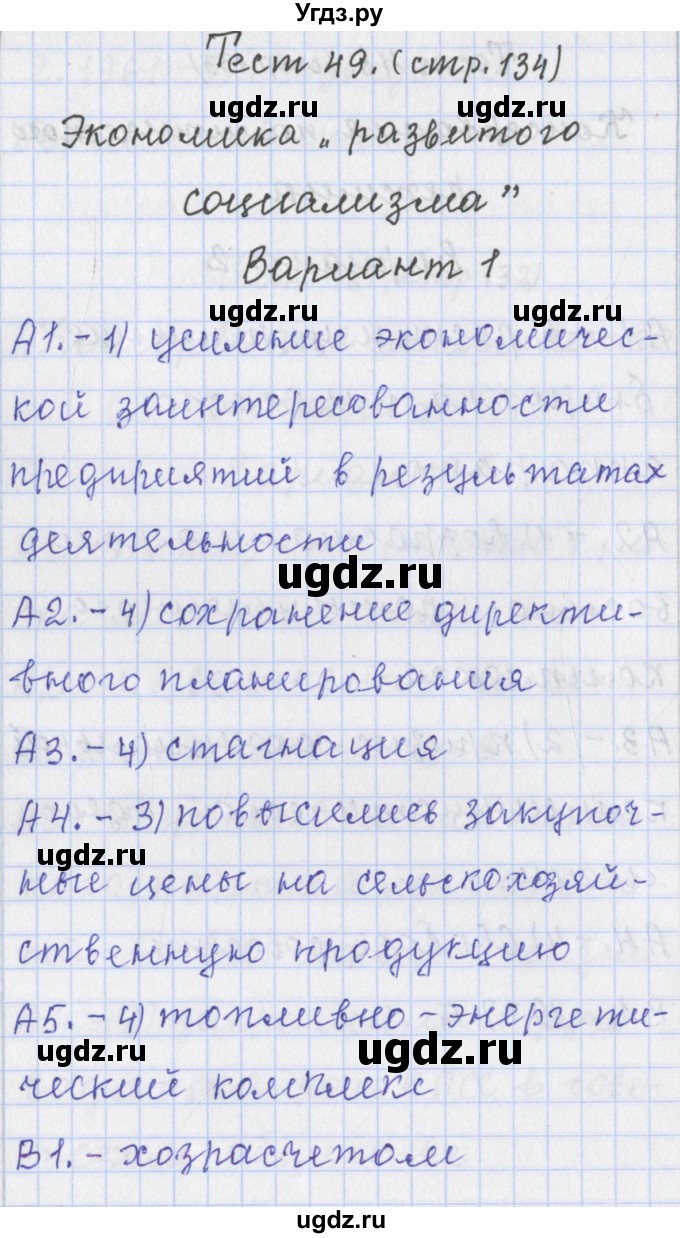 Угдз.ру
Тест 49. (стр. 134)
ugdz.ru ugdz.ru
Экономика „развитого
социализма”
Вариант 1
ugdz.ru ugdz.ru
А1.-1) усиление экономичес-
кой заинтересованности
предприятий в результатах
деятельности
ugdz.ru
А2.-4) сохранение директи-
вного планирования
А3.-4) стагнация
А4.-3) повысились закупоч-
ugdz.ru
ные цены на сельскохозяй-
ственную продукцию
А5.-4) топливно-энергети-
ugdz.ru ugdz.ru
ческий комплекс
В1.-хозрасчетом
ugdz.ru